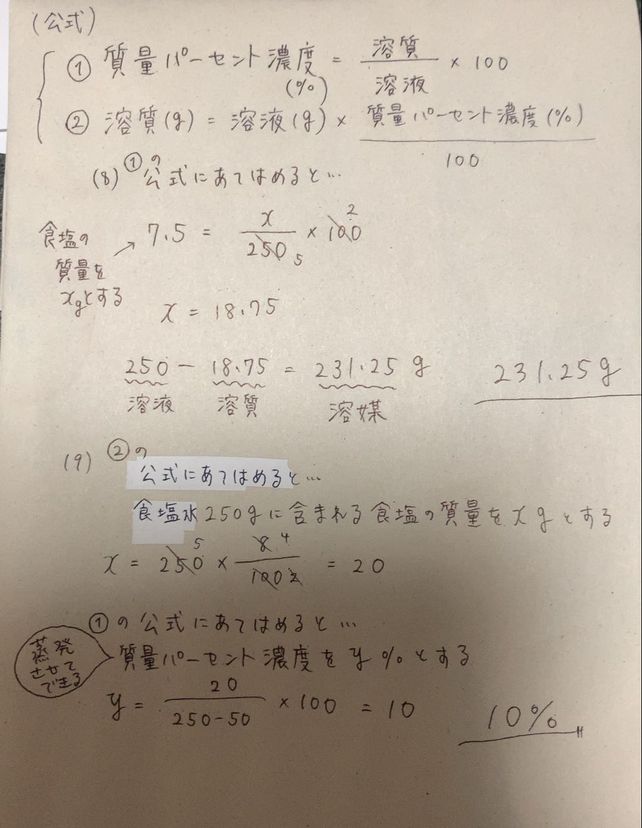 (公式)
① 質量パーセント濃度(%) = 溶質/溶液 × 100
② 溶質(g) = 溶液(g) × 質量パーセント濃度(%)/100
(8) ①の公式にあてはめると…
食塩の質量をxgとする → 7.5 = x/250 5 × 100 2
x = 18.75
250 - 18.75 = 231.25 g 231.25g
溶液 溶質 溶媒
(9) ②の公式にあてはめると…
食塩水250gに含まれる食塩の質量をxgとする
x = 250 5 × 8 4/100 2 = 20
①の公式にあてはめると…
蒸発させてできる 質量パーセント濃度をy%とする
y = 20/250-50 × 100 = 10 10%